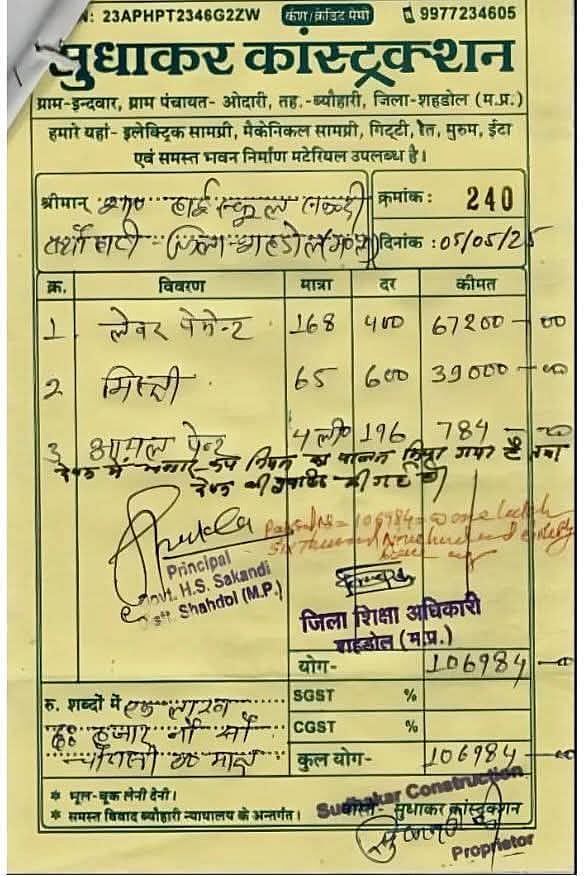 N: 23APHPT2346G2ZW कैश/क्रेडिट मेमो 9977234605
सुधाकर कांस्ट्रक्शन
ग्राम-इन्दवार, ग्राम पंचायत- ओदारी, तह.-ब्यौहारी, जिला-शहडोल (म.प्र.)
हमारे यहां- इलेक्ट्रिक सामग्री, मैकेनिकल सामग्री, गिट्टी, रेत, मुरुम, ईंटा
एवं समस्त भवन निर्माण मटेरियल उपलब्ध है।
श्रीमान् हाई स्कूल क्रमांक: 240
जिला-शहडोल दिनांक : 05/05/25
क्र. विवरण मात्रा दर कीमत
1 लेवर पेमेन्ट 168 400 67200-00
2 मिस्त्री 65 600 39000-00
3 आयल पेन्ट 4 ली0 196 784-00
देयक में भण्डार-क्रय नियम का पालन किया गया है तथा
देयक की की गई है
Passed Rs= 106984=00 one lakh
Six thousand Nine hundred eighty
four
Principal
Govt. H.S. Sakandi
Distt. Shahdol (M.P.)
जिला शिक्षा अधिकारी
शहडोल (म.प्र.)
योग- 106984-00
रु. शब्दों में एक लाख SGST %
छः हजार नौ सौ CGST %
चौरासी रू मात्र कुल योग- 106984-00
* भूल-चूक लेनी देनी।
* समस्त विवाद ब्यौहारी न्यायालय के अन्तर्गत।
Sudhakar Construction
वास्ते- सुधाकर कांस्ट्रक्शन
Proprietor